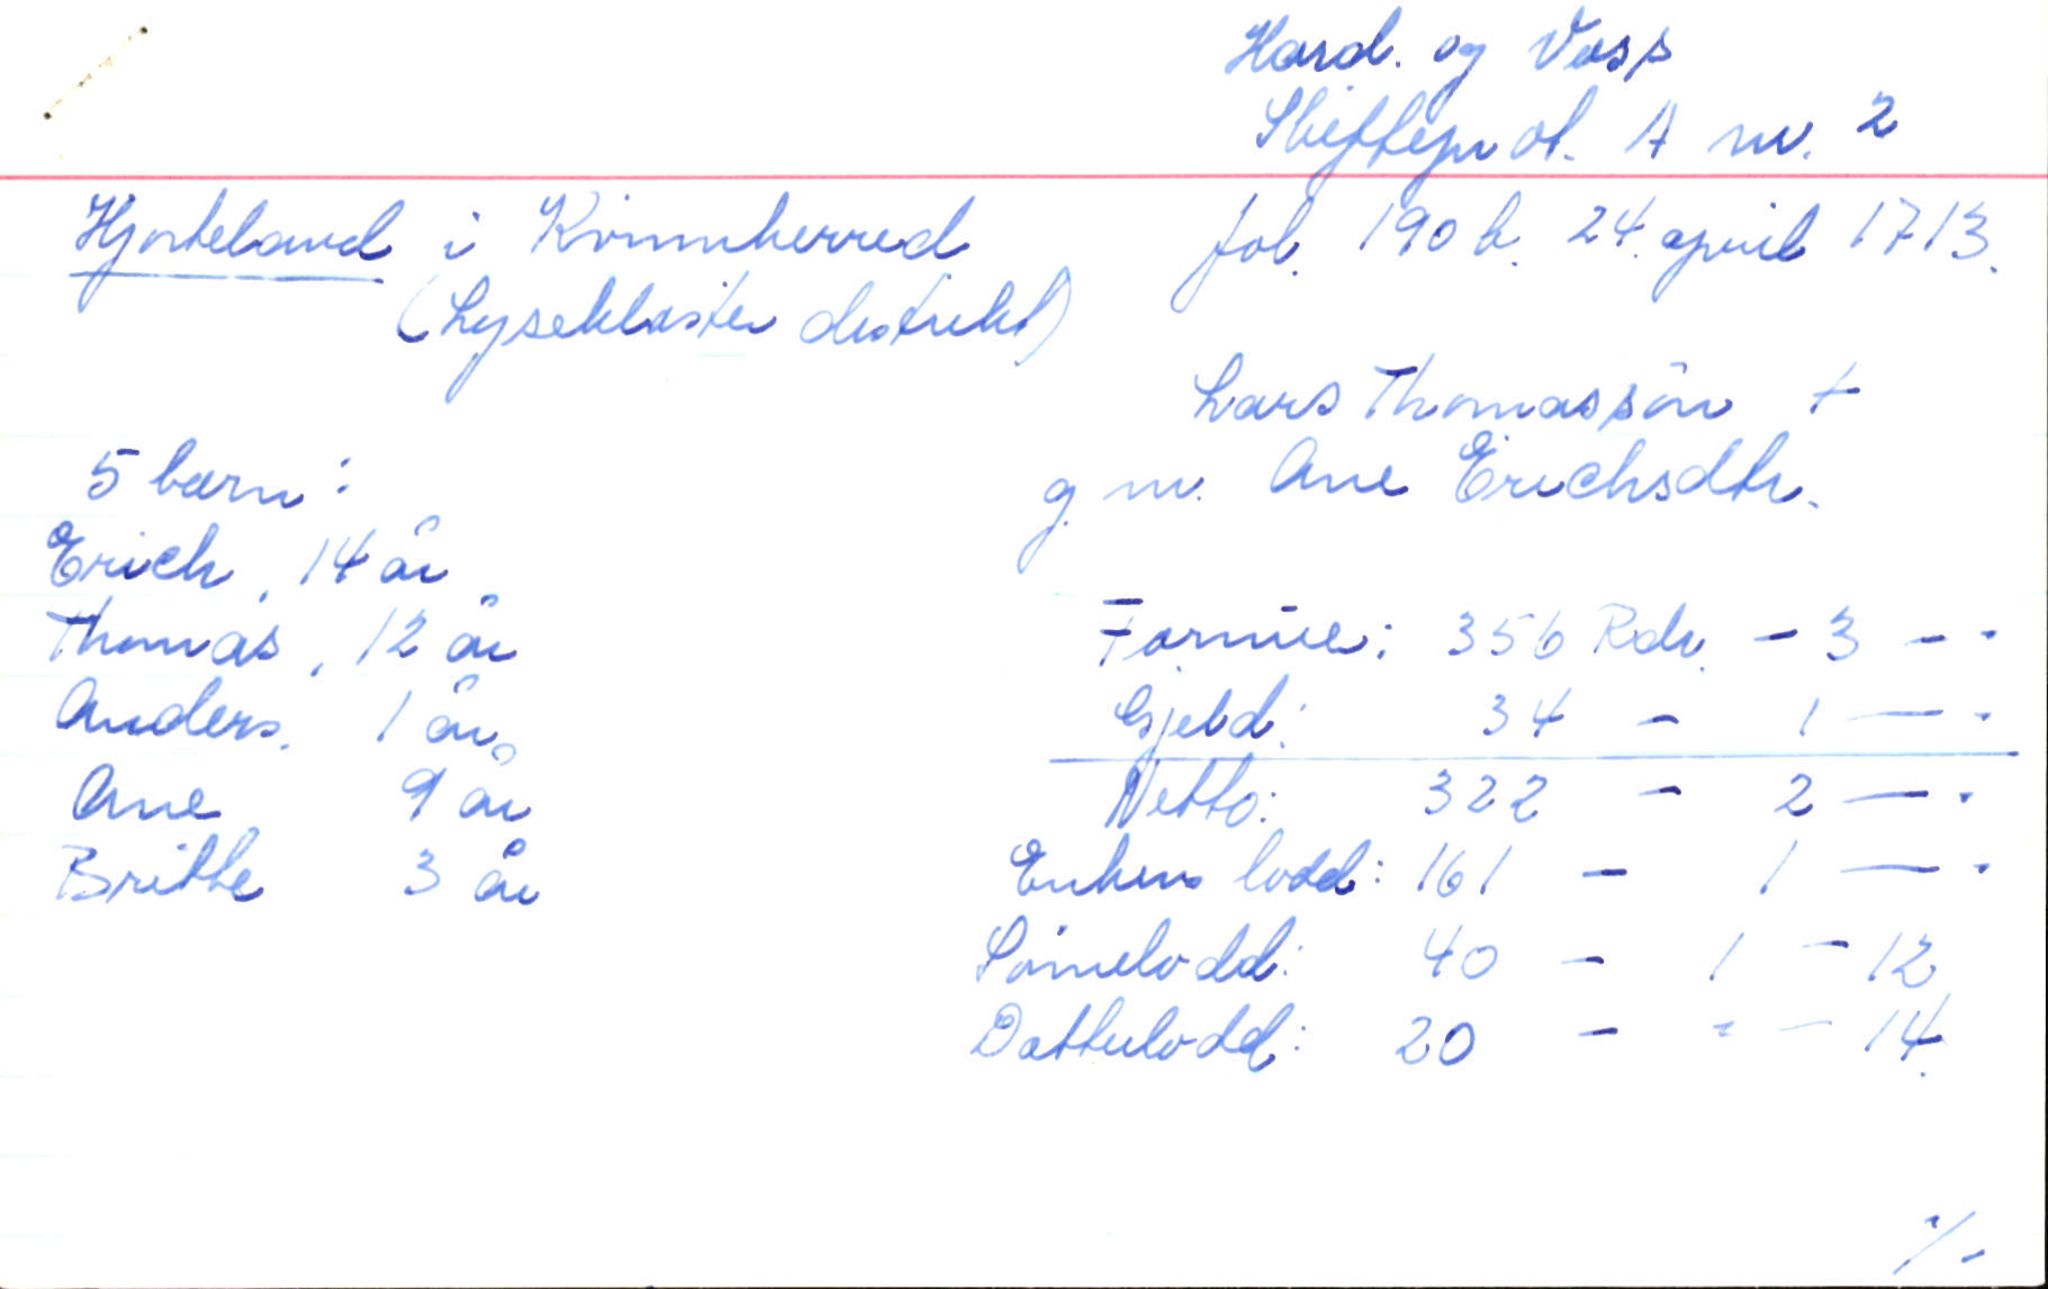 Hard. og Voss
Skifteprot. A nr. 2
Hjorteland i Kvinnherred
fol. 190 b. 24. april 1713.
(Lysekloster distrikt)
Lars Thomassön +
g. m. Ane Erichsdtr.
5 barn:
Erich, 14 år
Thomas, 12 år
Anders. 1 år.
Ane 9 år
Britte 3 år
Formue: 356 Rdr. - 3 - -
Gjeld: 34 - 1 - -
Netto: 322 - 2 - -
Enkens lodd: 161 - 1 - -
Sönnelodd: 40 - 1 - 12
Datterlodd: 20 - - - 14.
./.